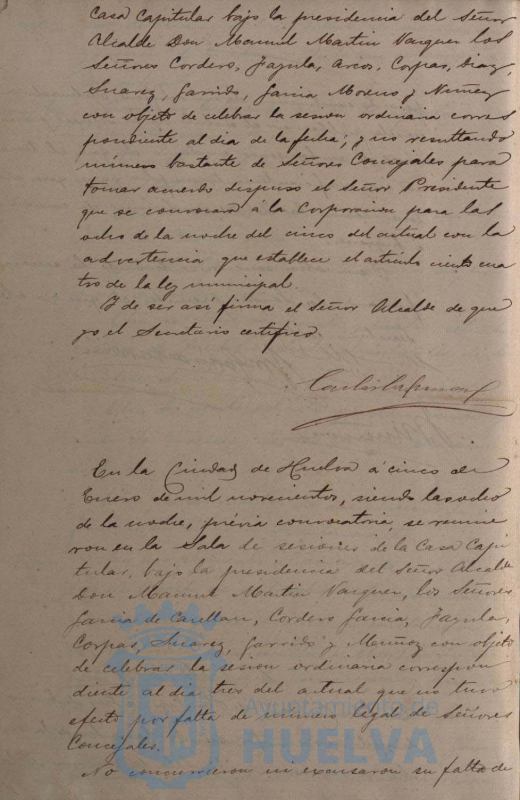 Casa Capitular bajo la presidencia del Señor
Alcalde Don Manuel Martin Vazquez los
Señores Cordero, Jagula, Arcos, Corpas, Diaz,
Suarez, Garrido, Garcia Moreno y Nuñez
con objeto de celebrar la sesion ordinaria corres
pondiente al dia de la fecha; y no resultando
número bastante de Señores Concejales para
tomar acuerdo dispuso el Señor Presidente
que se convocara á la Corporacion para las
ocho de la noche del cinco del actual con la
advertencia que establece el artículo ciento cua
tro de la ley municipal.
Y de ser así firma el Señor Alcalde de que
yo el Secretario certifico.
En la Ciudad de Huelva á cinco de
Enero de mil novecientos, siendo las ocho
de la noche, prévia convocatoria, se reunie
ron en la Sala de sesiones de la Casa Capi
tular, bajo la presidencia del Señor Alcalde
Don Manuel Martin Vazquez, los Señores
Garcia de Cordero Garcia, Jagula,
Corpas, Suarez, Garrido y Muñoz con objeto
de celebrar la sesion ordinaria correspon
diente al dia tres del actual que no tuvo
efecto por falta de número legal de Señores
Concejales.
No concurrieron ni excusaron su falta de
Ayuntamiento de
HUELVA